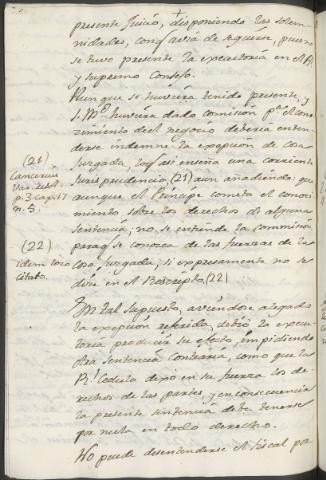 presente Juicio, disponiendo las solem
nidades, con  havia de seguirse, pues no
se tuvo presente la executoria en el R.l
y supremo Consejo.
Aunque se huviera tenido presente, y
S. M.d huviera dado comision p.a el cono
cimiento del negocio deveria enten
derse indemne la excepcion de cosa
Juzgada, assi enseña una corriente
Jurisprudencia (21) aun añadiendo que
aunque el Principe cometa el conoci
miento sobre los derechos de alguna
sentencia, no se entiende la commission
para q.e se conozca de las fuerzas de la
Cosa Juzgada, si expresamente no se
dice en el Rescripto (22)
(21)
Cancerius
Var. resol.
p. 3 cap. 17
n. 5.
(22)
idem loco
citato.
En tal supuesto, aviendose alegado
la excepcion referida, devió la execu
toria producir su efecto, impidiendo
otra sentencia Contraria, como que la
R.l Cedula dexó en su fuerza los de
rechos de las partes, y en consecuencia
la presente sentencia debe tenerse
por nula en todo derecho.
No puede desentenderse el Fiscal por